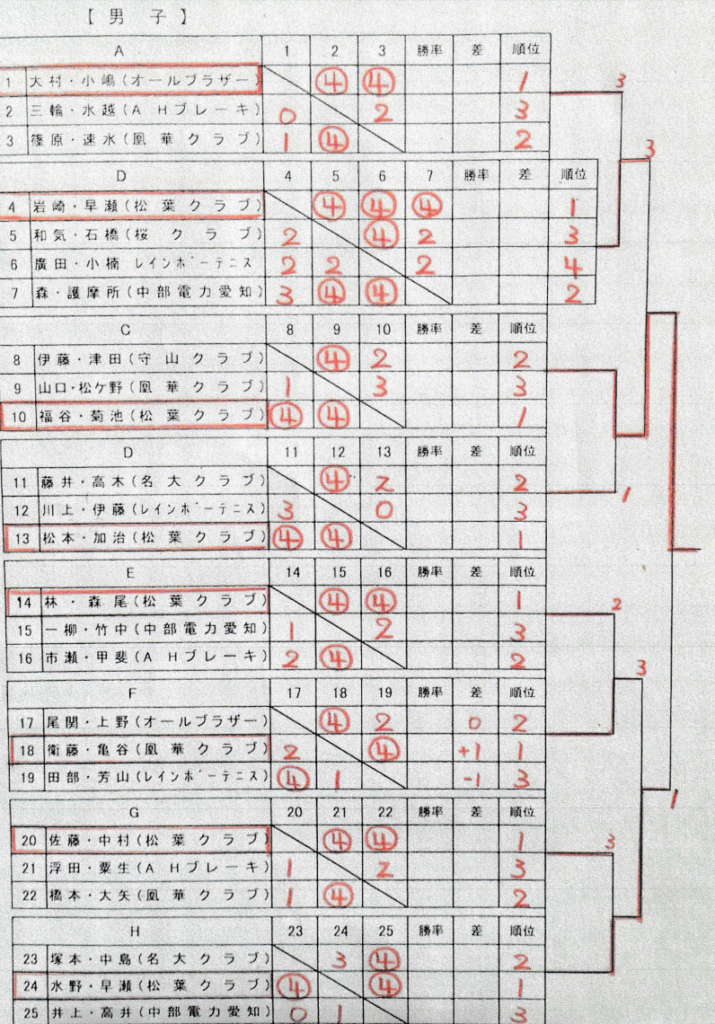 【男子】
A 1 2 3 勝率 差 順位
1 大村・小嶋(オールブラザー) ④ ④ 1
2 三輪・水越(AHブレーキ) 0 2 3
3 篠原・速水(凰華クラブ) 1 ④ 2
3
3
D 4 5 6 7 勝率 差 順位
4 岩崎・早瀬(松葉クラブ) ④ ④ ④ 1
5 和気・石橋(桜クラブ) 2 ④ 2 3
6 廣田・小楠 レインボーテニス 2 2 2 4
7 森・護摩所(中部電力愛知) 3 ④ ④ 2
C 8 9 10 勝率 差 順位
8 伊藤・津田(守山クラブ) ④ 2 2
9 山口・松ケ野(凰華クラブ) 1 3 3
10 福谷・菊池(松葉クラブ) ④ ④ 1
D 11 12 13 勝率 差 順位
11 藤井・高木(名大クラブ) ④ 2 2
12 川上・伊藤(レインボーテニス) 3 0 3
13 松本・加治(松葉クラブ) ④ ④ 1
1
E 14 15 16 勝率 差 順位
14 林・森尾(松葉クラブ) ④ ④ 1
15 一柳・竹中(中部電力愛知) 1 2 3
16 市瀬・甲斐(AHブレーキ) 2 ④ 2
2
3
F 17 18 19 勝率 差 順位
17 尾関・上野(オールブラザー) ④ 2 0 2
18 衛藤・亀谷(凰華クラブ) 2 ④ +1 1
19 田部・芳山(レインボーテニス) ④ 1 -1 3
1
G 20 21 22 勝率 差 順位
20 佐藤・中村(松葉クラブ) ④ ④ 1
21 浮田・粟生(AHブレーキ) 1 2 3
22 橋本・大矢(凰華クラブ) 1 ④ 2
3
H 23 24 25 勝率 差 順位
23 塚本・中島(名大クラブ) 3 ④ 2
24 水野・早瀬(松葉クラブ) ④ ④ 1
25 井上・高井(中部電力愛知) 0 1 3